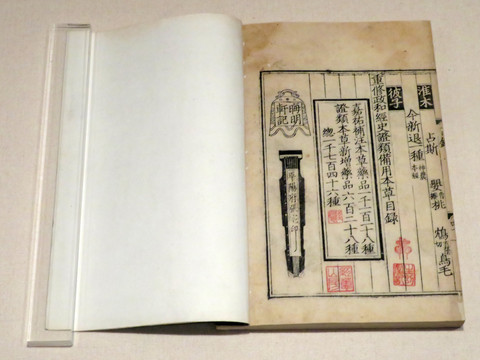 淮木
占斯
桃
鳥毛
今新退一種
彼子
重修政和經史證類備用本草目錄
嘉祐補注本草藥品一千一百一十八種
證類本草新增藥品六百二十八種
總一千七百四十六種
晦明
軒記
平陽府張宅印